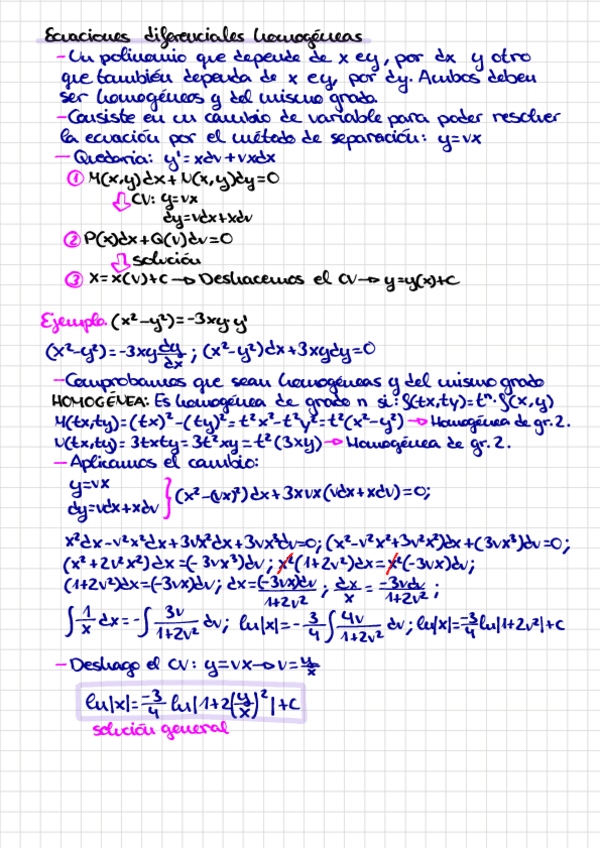 Ecuaciones diferenciales homogéneas
- Un polinomio que depende de x e y, por dx y otro
que también dependa de x e y, por dy. Ambos deben
ser homogéneos y del mismo grado.
- Consiste en un cambio de variable para poder resolver
la ecuación por el método de separación: y=vx
- Quedaría: y'=xdv+vxdx
① M(x,y)dx+N(x,y)dy=0
⇩ CV: y=vx
dy=vdx+xdv
② P(x)dx+Q(v)dv=0
⇩ solución
③ X=x(v)+c → Deshacemos el CV → y=y(x)+c
Ejemplo. (x²-y²)=-3xy·y'
(x²-y²)=-3xy dy/dx ; (x²-y²)dx+3xydy=0
- Comprobamos que sean homogéneas y del mismo grado
HOMOGÉNEA: Es homogénea de grado n si: f(tx,ty)=tⁿ·f(x,y)
M(tx,ty)=(tx)²-(ty)²=t²x²-t²y²=t²(x²-y²) → Homogénea de gr.2.
N(tx,ty)=3txty=3t²xy=t²(3xy) → Homogénea de gr.2.
- Aplicamos el cambio:
y=vx
dy=vdx+xdv } (x²-(vx)²)dx+3xvx(vdx+xdv)=0;
x²dx-v²x²dx+3v²x²dx+3vx³dv=0; (x²-v²x²+3v²x²)dx+(3vx³)dv=0;
(x²+2v²x²)dx=(-3vx³)dv; x²(1+2v²)dx=x²(-3vx)dv;
(1+2v²)dx=(-3vx)dv; dx=(-3vx)dv/1+2v² ; dx/x = -3vdv/1+2v² ;
∫1/x dx=-∫3v/1+2v² dv; ln|x|=-3/4∫4v/1+2v² dv; ln|x|=-3/4 ln|1+2v²|+c
- Deshago el CV: y=vx → v=y/x
ln|x|=-3/4 ln|1+2(y/x)²|+c
solución general